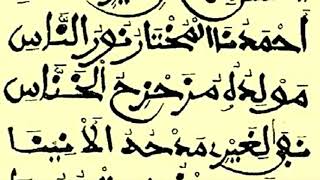 أحمدنا المختار نور الناس
مولده مزحزح الخناس
نفى لغير مدحه الأنينا